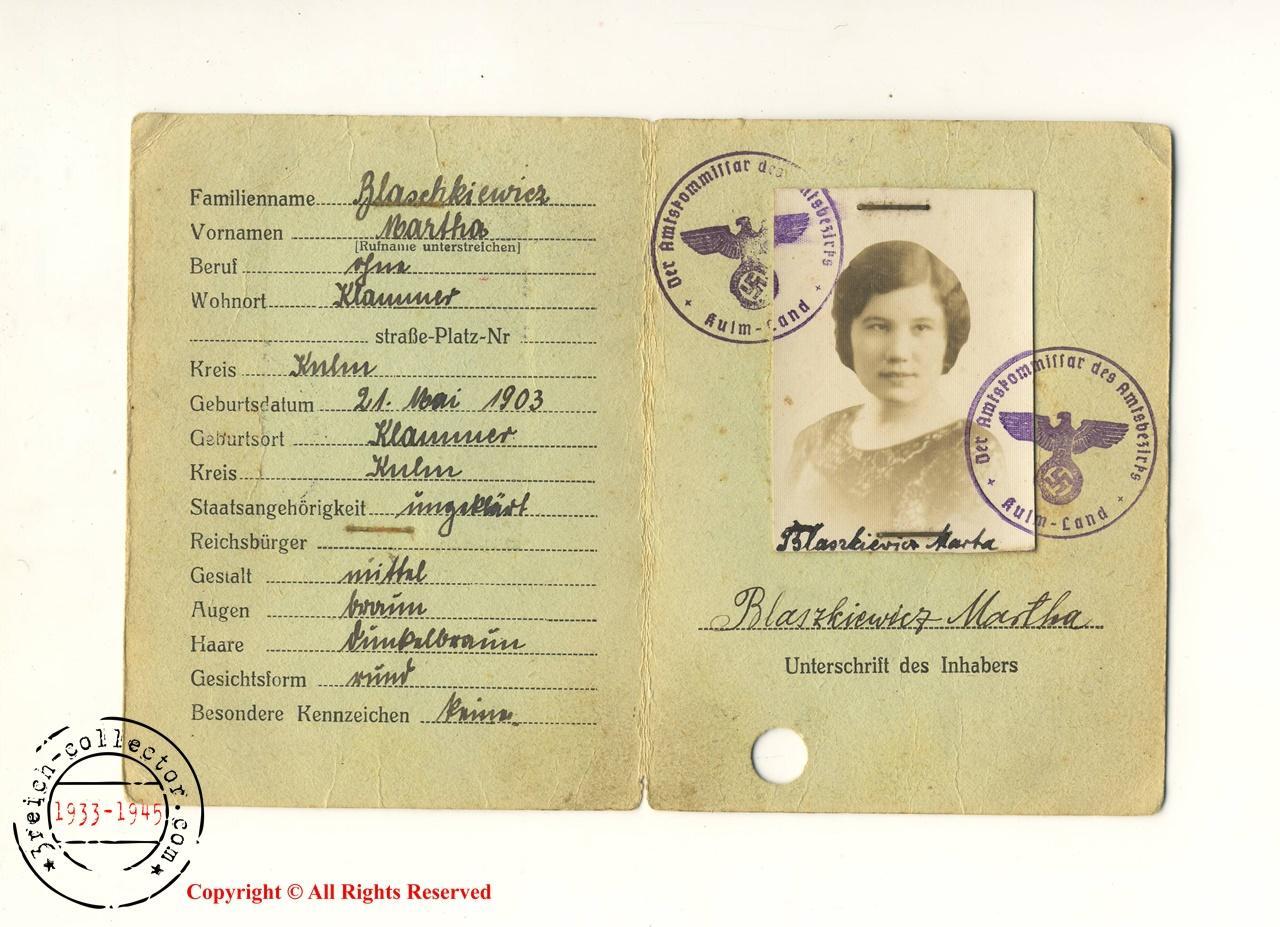 Familienname Blaschkiewicz
Vornamen Martha
[Rufname unterstreichen]
Beruf ohne
Wohnort Klammer
straße-Platz-Nr
Kreis Kulm
Geburtsdatum 21. Mai 1903
Geburtsort Klammer
Kreis Kulm
Staatsangehörigkeit ungeklärt
Reichsbürger
Gestalt mittel
Augen braun
Haare dunkelbraun
Gesichtsform rund
Besondere Kennzeichen keine
Der Amtskommissar des Amtsbezirks
Kulm-Land
Blaszkiewicz Marta
Der Amtskommissar des Amtsbezirks
Kulm-Land
Blaszkiewicz Martha
Unterschrift des Inhabers
3reich-collector.com
1933-1945
Copyright © All Rights Reserved